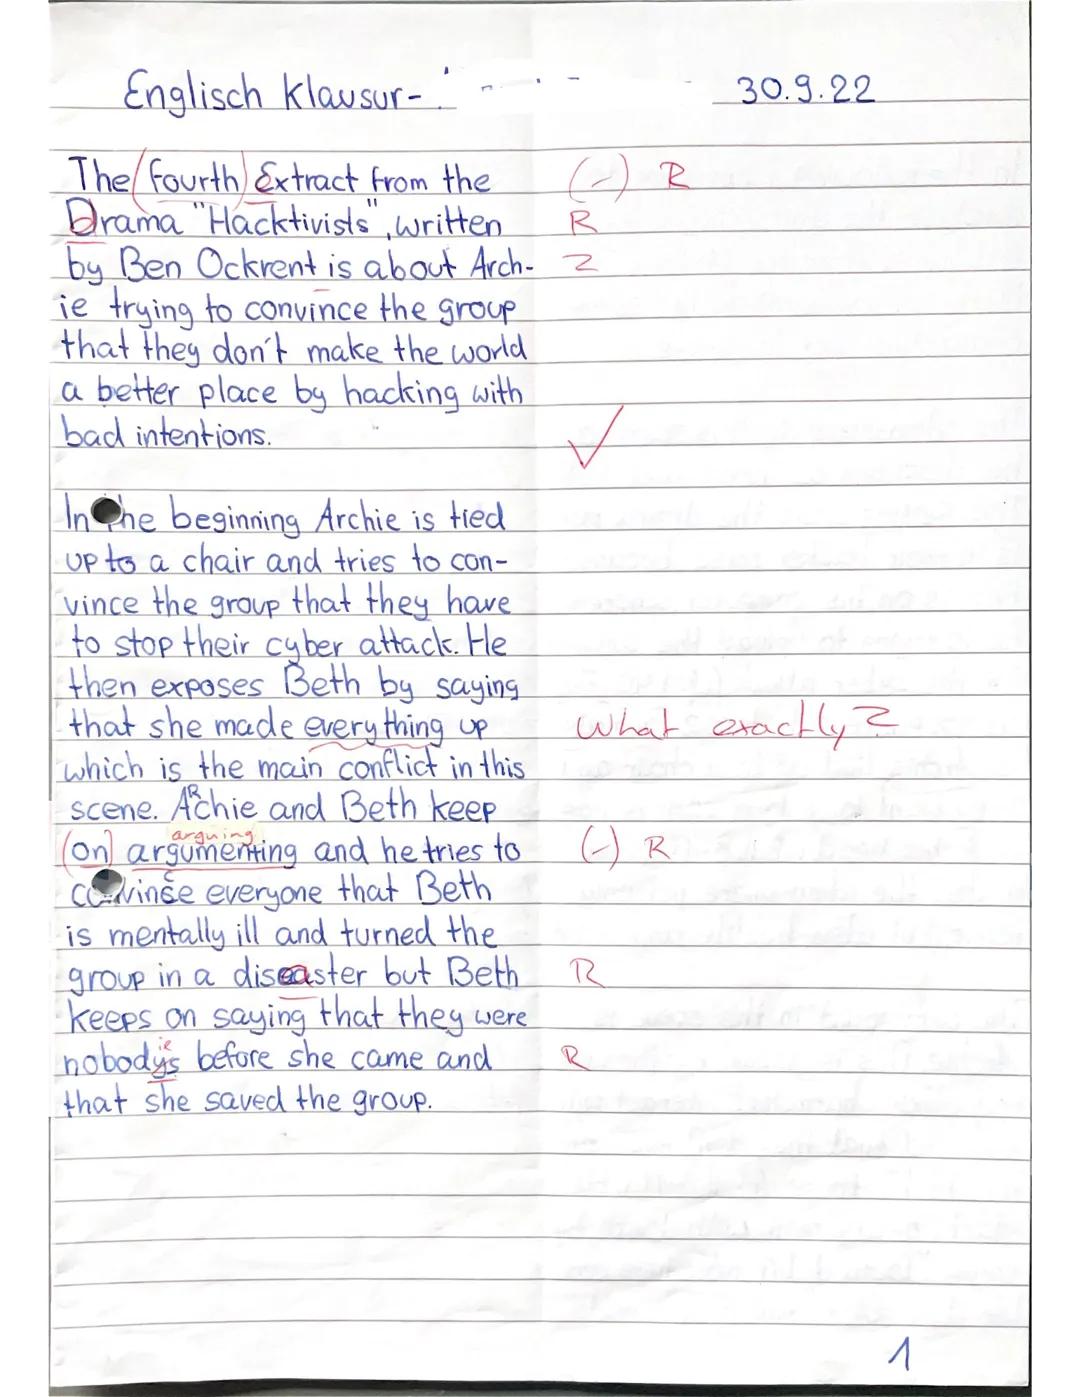 Englisch Klausur- 30.9.22
The (fourth) Extract from the (-) R
Drama "Hacktivists", written R
by Ben Ockrent is about Arch- Z
ie trying to convince the group
that they don't make the world
a better place by hacking with
bad intentions. ✓
In the beginning Archie is tied
up to a chair and tries to con-
vince the group that they have
to stop their cyber attack. He
then exposes Beth by saying
that she made everything up What exactly?
which is the main conflict in this
R
scene. Achie and Beth keep
arguing
(on) argumenting and he tries to (-) R
convince everyone that Beth
is mentally ill and turned the
group in a diseaster but Beth R
keeps on saying that they were
ie
nobodys before she came and R
that she saved the group.
1